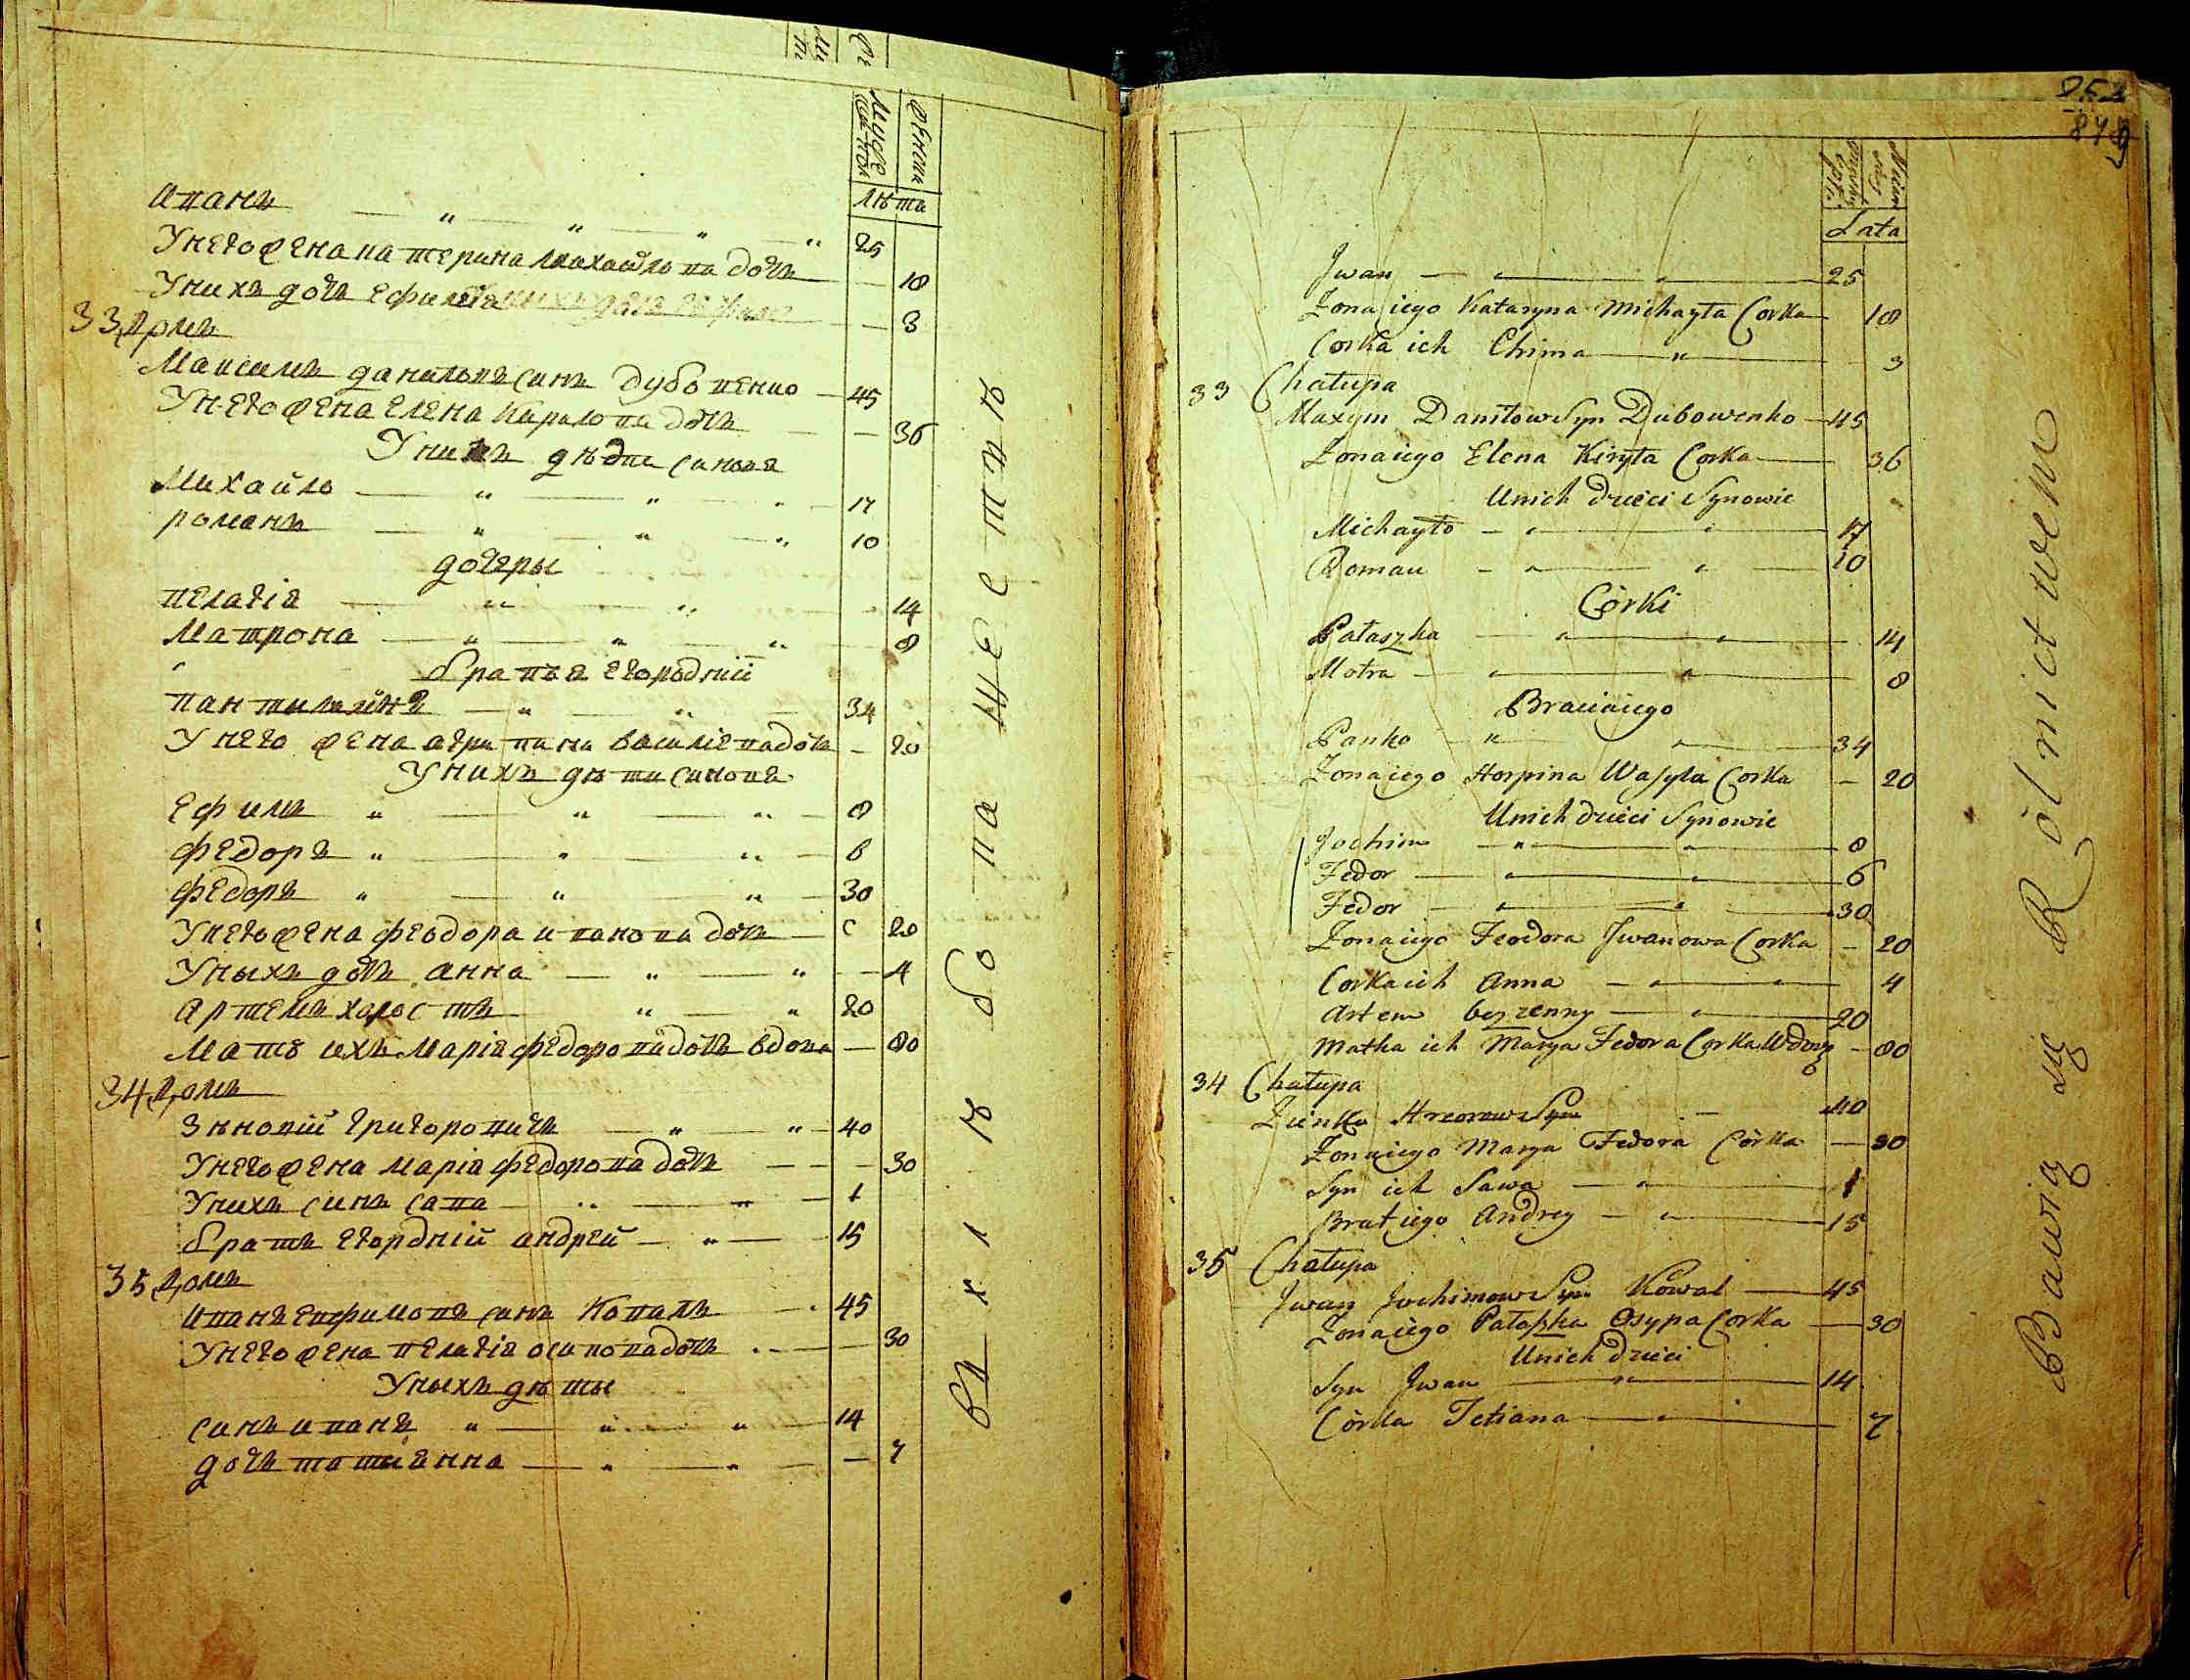 Мужеска полу
Женска
лѣта
иванъ 25
У него жена катерина михайлова дочь — 18
У нихъ дочь ефимія — 3
33 Домъ
Максимъ даниловъ синъ дубовенко — 45
У него жена елена кирилова дочь — 36
У нихъ дѣти синовя
Михайло — 17
романъ — 10
дочеры
пелагія — 14
Матрона — 8
братья его родніи
пантилимѣнъ — 34
У него жена агрипина василіева дочь — 20
У нихъ дѣти синовя
Ефимъ — 8
федоръ — 6
федоръ — 30
У него жена феодора иванова дочь — 20
У ныхъ дочь анна — 4
артемъ холостъ — 20
Мать ихъ Марія федорова дочь вдова — 80
34 Домъ
Зѣновій григоровичъ — 40
У него жена марія федорова дочь — 30
У нихъ синъ сава — 1
братъ его родній андрей — 15
35 Домъ
иванъ евфимовъ синъ Коваль — 45
У него жена пелагія осипова дочь — 30
У ныхъ дѣты
синъ иванъ — 14
дочь татіянна — 7
въ хлѣбопашествѣ
253
Lata
Jwan — 25
Zona iego Kataryna Michayła Corka — 18
Corka ich Chima — 3
33 Chałupa
Maxym Daniłow Syn Dubowenko — 45
Zona iego Elena Kiryła Corka — 36
U nich dzieci Synowie
Michayło — 17
Roman — 10
Córki
Pałaszka — 14
Motra — 8
Bracia iego
Panko — 34
Zona iego Horpina Wasyla Corka — 20
U nich dzieci Synowie
Jochim — 8
Fedor — 6
Fedor — 30
Zona iego Feodora Jwanowa Corka — 20
Corka ich Anna — 4
Artem bezzenny — 20
Matka ich Marya Fedora Corka Wdowa — 80
34 Chałupa
Zinko Hreorow Syn — 40
Zona iego Marya Fedora Córka — 30
Syn ich Sawa — 1
Brat iego Andrey — 15
35 Chałupa
Jwan Jochimow Syn Kowal — 45
Zona iego Pałaszka Osypa Corka — 30
U nich dzieci
Syn Jwan — 14
Córka Tetiana — 7
Bawią się Rolnictwem